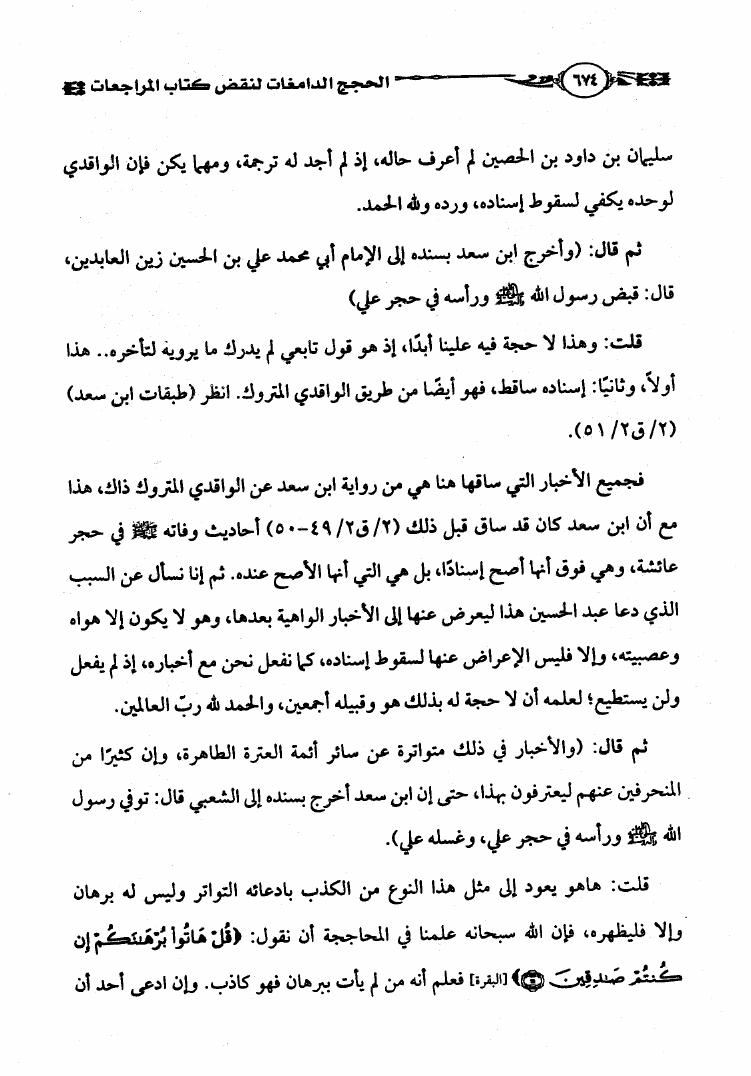 ٦٧٤
الحجج الدامغات لنقض كتاب المراجعات
سليمان بن داود بن الحصين لم أعرف حاله، إذ لم أجد له ترجمة، ومهما يكن فإن الواقدي
لوحده يكفي لسقوط إسناده، ورده ولله الحمد.
ثم قال: (وأخرج ابن سعد بسنده إلى الإمام أبي محمد علي بن الحسين زين العابدين،
قال: قبض رسول الله ﷺ ورأسه في حجر علي)
قلت: وهذا لا حجة فيه علينا أبدًا، إذ هو قول تابعي لم يدرك ما يرويه لتأخره.. هذا
أولاً، وثانيًا: إسناده ساقط، فهو أيضًا من طريق الواقدي المتروك. انظر (طبقات ابن سعد)
(٢/ ق٢/ ٥١).
فجميع الأخبار التي ساقها هنا هي من رواية ابن سعد عن الواقدي المتروك ذاك، هذا
مع أن ابن سعد كان قد ساق قبل ذلك (٢/ ق٢/ ٤٩-٥٠) أحاديث وفاته ﷺ في حجر
عائشة، وهي فوق أنها أصح إسنادًا، بل هي التي أنها الأصح عنده. ثم إنا نسأل عن السبب
الذي دعا عبد الحسين هذا ليعرض عنها إلى الأخبار الواهية بعدها، وهو لا يكون إلا هواه
وعصبيته، وإلا فليس الإعراض عنها لسقوط إسناده، كما نفعل نحن مع أخباره، إذ لم يفعل
ولن يستطيع؛ لعلمه أن لا حجة له بذلك هو وقبيله أجمعين، والحمد لله ربّ العالمين.
ثم قال: (والأخبار في ذلك متواترة عن سائر أئمة العترة الطاهرة، وإن كثيرًا من
المنحرفين عنهم ليعترفون بهذا، حتى إن ابن سعد أخرج بسنده إلى الشعبي قال: توفي رسول
الله ﷺ ورأسه في حجر علي، وغسله علي).
قلت: هاهو يعود إلى مثل هذا النوع من الكذب بادعائه التواتر وليس له برهان
وإلا فليظهره، فإن الله سبحانه علمنا في المحاججة أن نقول: ﴿قُلْ هَاتُوا۟ بُرْهَـٰنَكُمْ إِن
كُنتُمْ صَـٰدِقِينَ﴾ [البقرة] فعلم أنه من لم يأت ببرهان فهو كاذب. وإن ادعى أحد أن